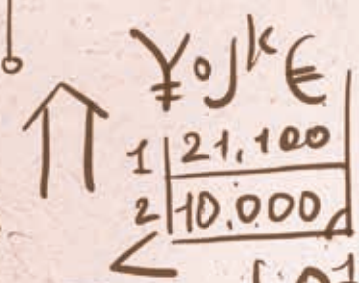 ¥oJk€
1 21,100
2 10.000